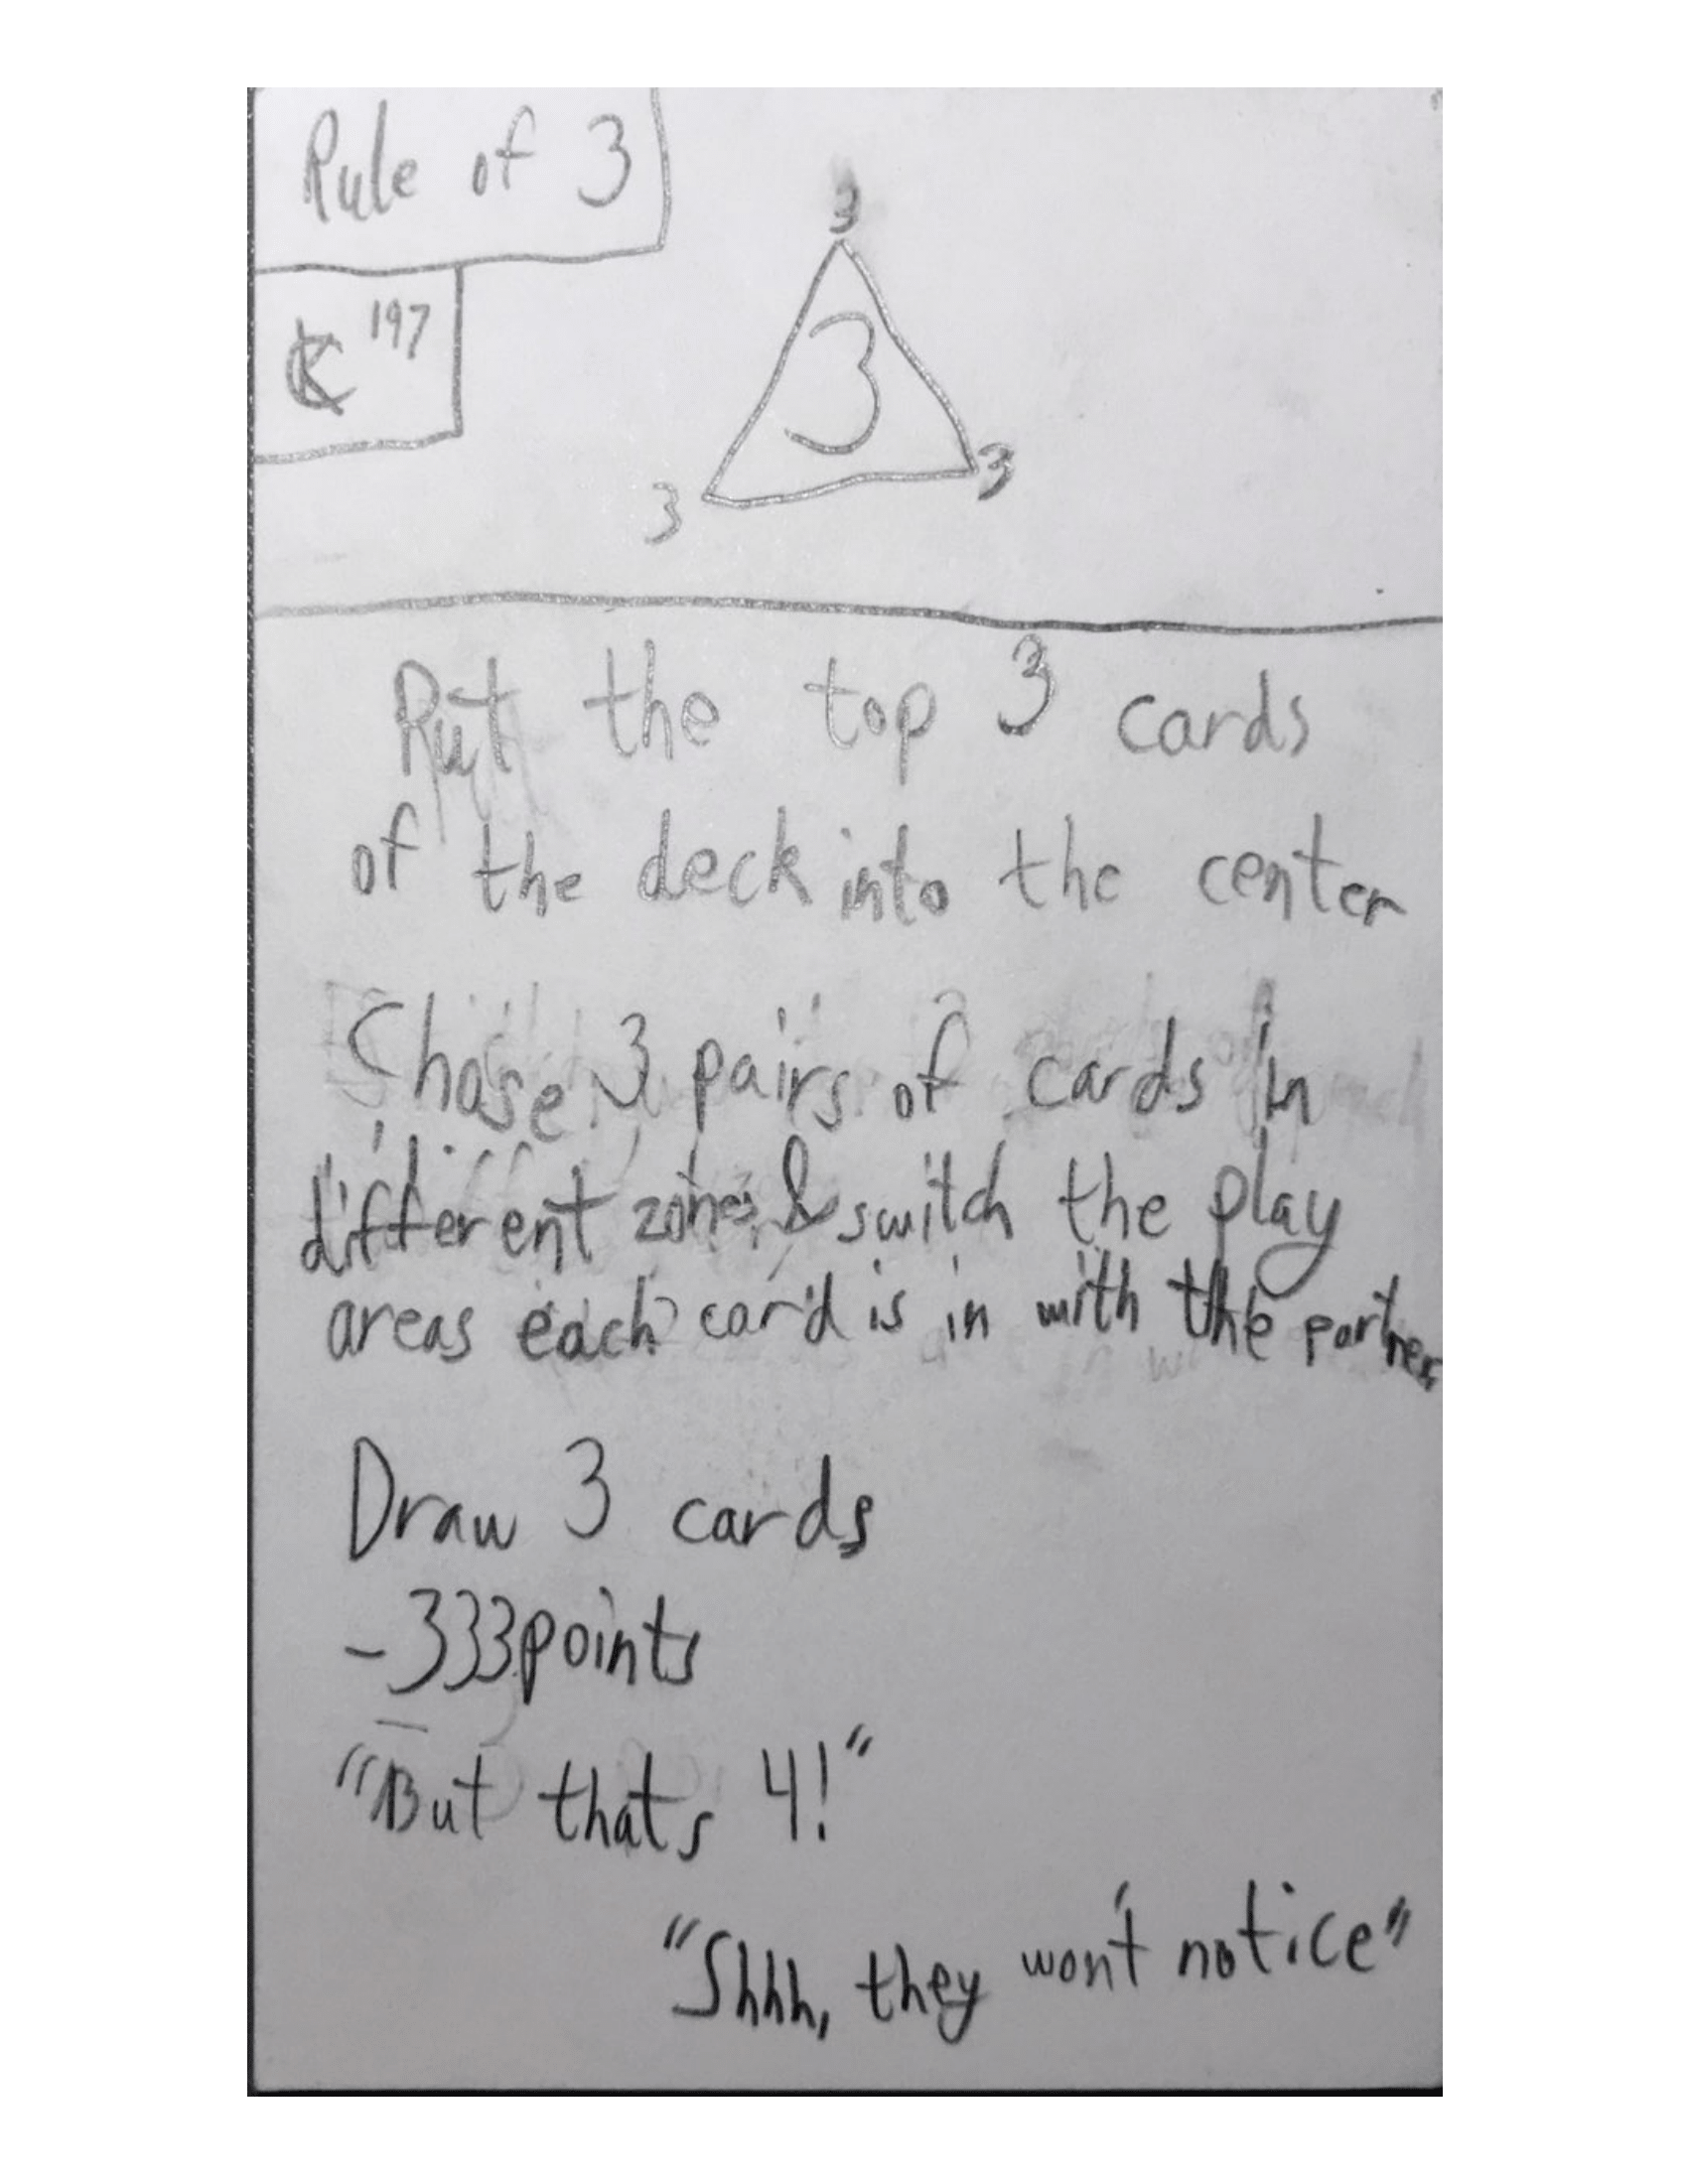 Rule of 3
197
3
3
3
3
Put the top 3 cards
of the deck into the center
Chose 3 pairs of cards in
different zones & switch the play
areas each card is in with the partner
Draw 3 cards
-333 points
"But thats 4!"
"Shhh, they won't notice"